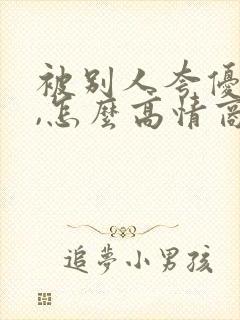 被别人夸優
,怎麼高情商
追夢小男孩